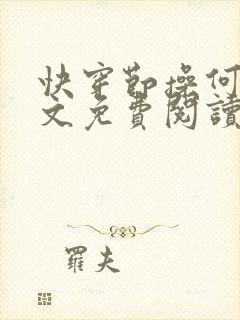 快穿節操何
文免費閱讀
羅夫